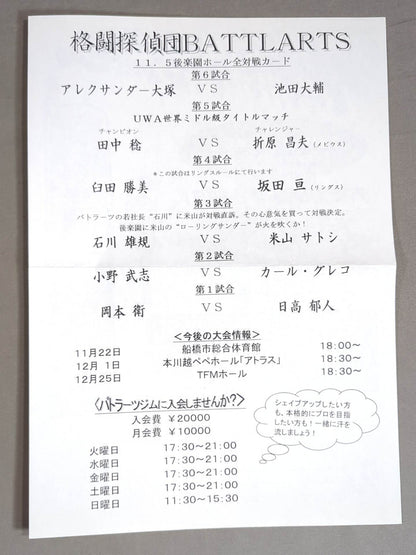 格闘探偵団BATTLARTS
11．5後楽園ホール全対戦カード
第6試合
アレクサンダー大塚 VS 池田大輔
第5試合
UWA世界ミドル級タイトルマッチ
チャンピオン チャレンジャー
田中 稔 VS 折原 昌夫(メビウス)
第4試合
＊この試合はリングスルールにて行います
臼田 勝美 VS 坂田 亘(リングス)
第3試合
バトラーツの若社長“石川”に米山が対戦直訴。その心意気を買って対戦決定。
後楽園に米山の“ローリングサンダー”が火を吹くか！
石川 雄規 VS 米山 サトシ
第2試合
小野 武志 VS カール・グレコ
第1試合
岡本 衛 VS 日高 郁人
＜今後の大会情報＞
11月22日 船橋市総合体育館 18:00～
12月 1日 本川越ペペホール「アトラス」 18:30～
12月25日 TFMホール 18:30～
＜バトラーツジムに入会しませんか？＞
入会費 ￥20000
月会費 ￥10000
火曜日 17:30～21:00
水曜日 17:30～21:00
金曜日 17:30～21:00
土曜日 17:30～21:00
日曜日 11:30～15:30
シェイプアップしたい方
も、本格的にプロを目指
したい方も！一緒に汗を
流しましょう！